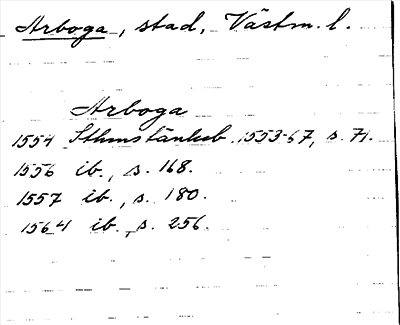 Arboga, stad, Västm. l.
Arboga
1554 Sthms tänkeb. 1553-67, s. 71.
1556 ib., s. 168.
1557 ib., s. 180.
1564 ib., s. 256.